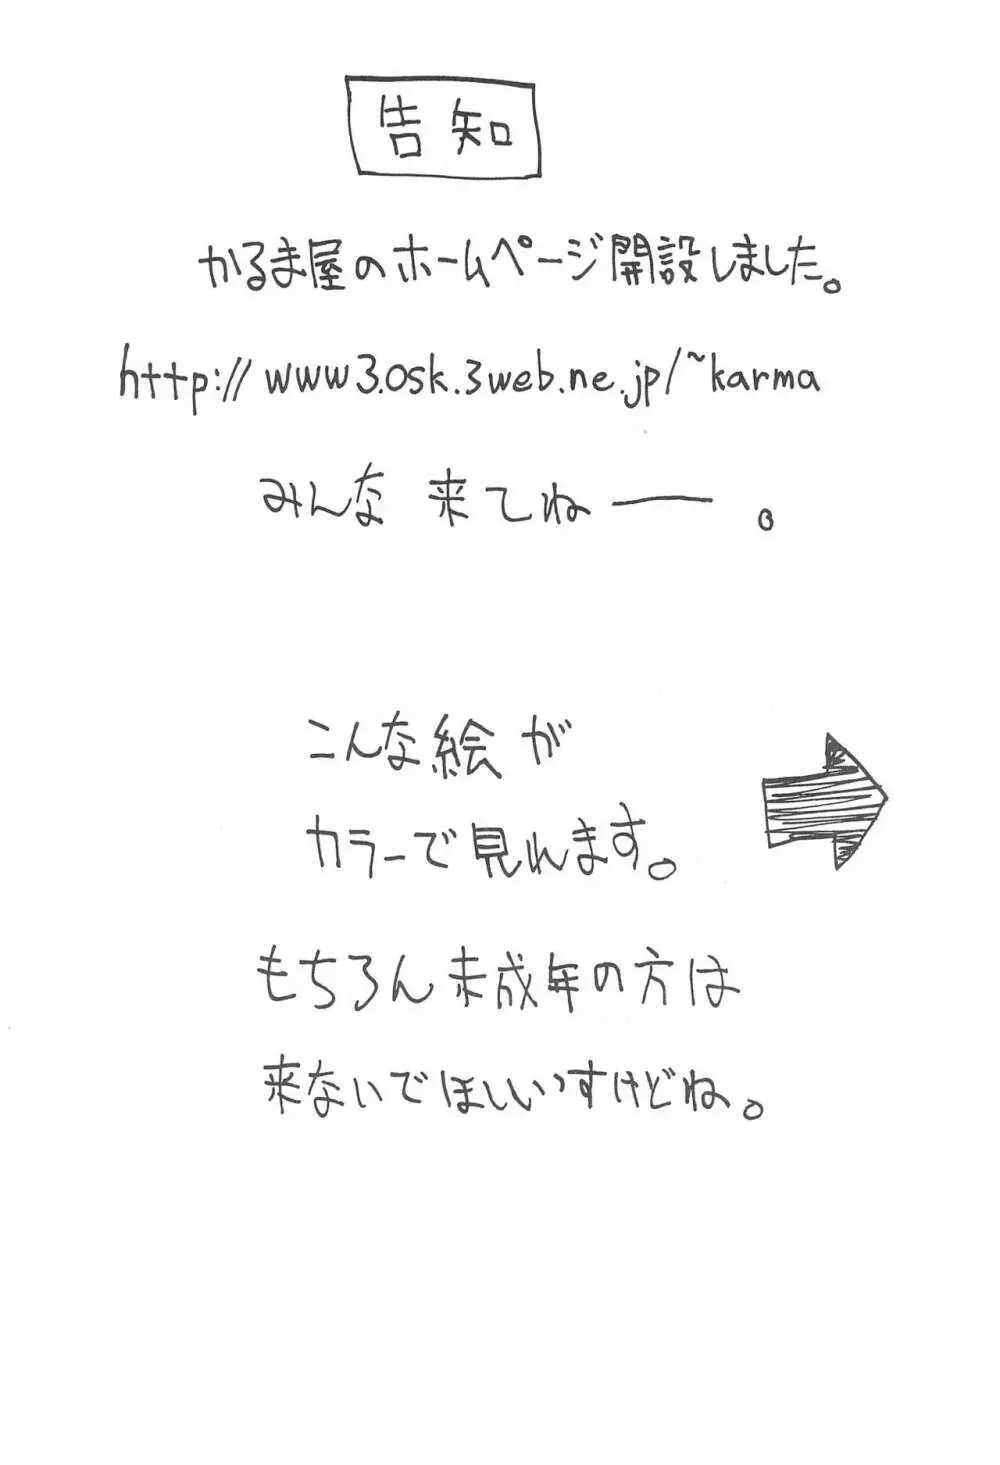 告知
かるま屋のホームページ開設しました。
http://www3.osk.3web.ne.jp/~karma
みんな 来てねー。
こんな絵が
カラーで見れます。
もちろん未成年の方は
来ないでほしいすけどね。